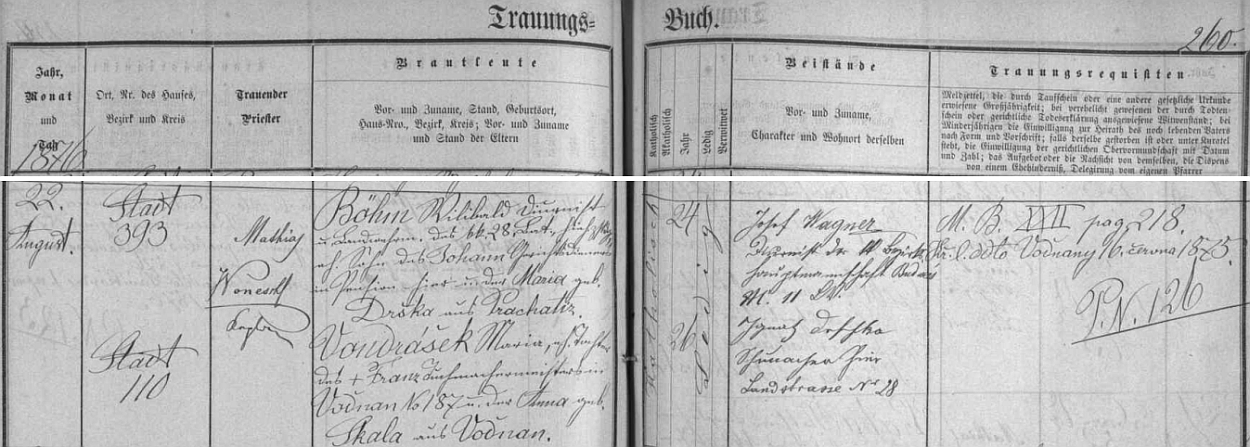 Trauungs=
Buch.
260.
Jahr,
Monat
und
Tag
1876
Ort, Nr. des Hauses,
Bezirk und Kreis
Trauender
Priester
Brautleute
Vor- und Zuname, Stand, Geburtsort,
Haus-Nro., Bezirk, Kreis; Vor- und Zuname
und Stand der Eltern
Katholisch
Akatholisch
Jahr
Ledig
Verwitwet
Beistände
Vor- und Zuname,
Charakter und Wohnort derselben
Trauungsrequisiten
Meldzettel, die durch Taufschein oder eine andere gesetzliche Urkunde
erwiesene Großjährigkeit; bei verehelicht gewesenen der durch Todten-
schein oder gerichtliche Todeserklärung ausgewiesene Witwenstand; bei
Minderjährigen die Einwilligung zur Heirath des noch lebenden Vaters
nach Form und Vorschrift; falls derselbe gestorben ist oder unter Kuratel
steht, die Einwilligung der gerichtlichen Obervormundschaft mit Datum
und Zahl; das Aufgebot oder die Nachsicht von demselben, die Dispens
von einem Ehehinderniß, Delegirung vom eigenen Pfarrer
22.
August
Stadt
393
Mathias
Kaplan
Böhm Wilibald Diurnist
u. Landwehrm. des kk. 28. Bat.
eh. Sohn des Johann Gerichtsdieners
in Pension hier u. der Maria geb.
Drska aus Prachatitz.
Stadt
110
Vondrášek Maria, eh. Tochter
des + Franz Tuchmachermeisters in
Vodnan No 187 u. der Anna geb.
Skala aus Vodnan.
Katholisch
24
26
Ledig
Josef Wagner
Diurnist der kk Bezirks
hauptmannschaft Budweis
Nr. 11
Ignatz
Schumacher hier
Landstrasse No 28
M. B. XXII pag. 218.
ddto Vodnany 16. června 1875.
P.N. 126